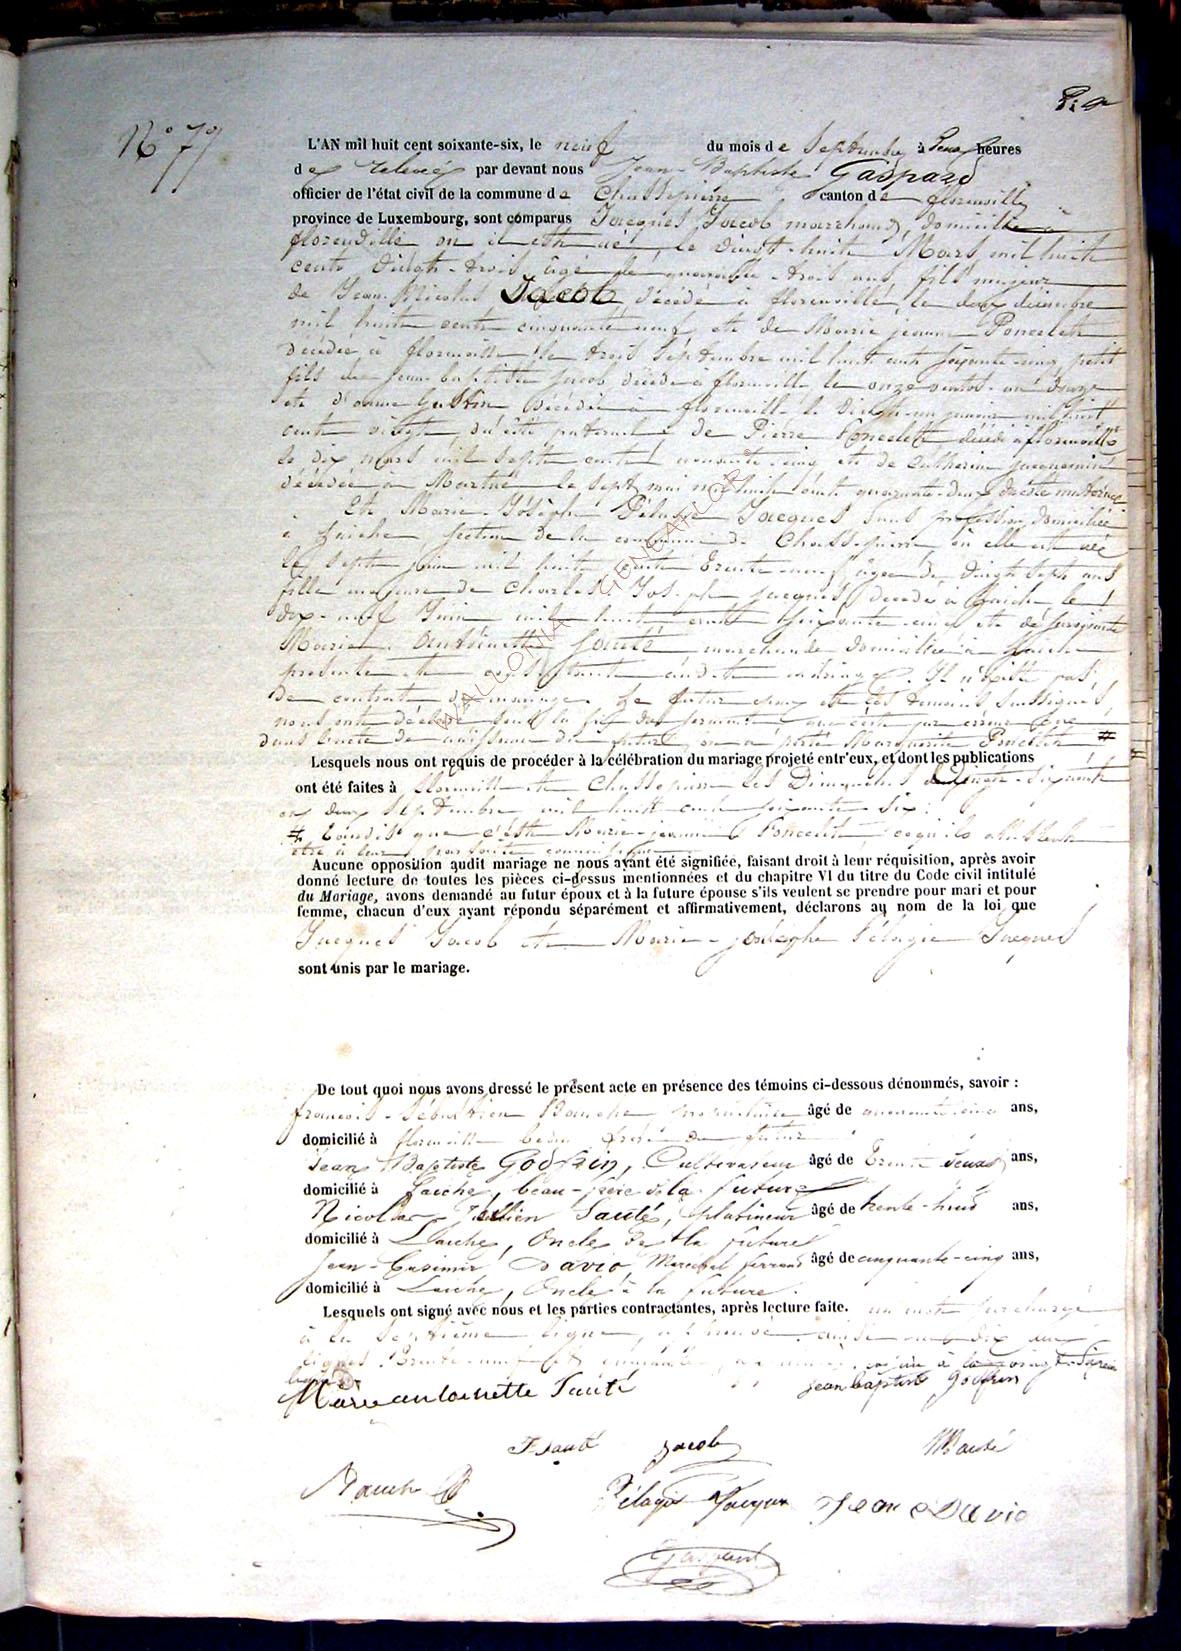 N° 7
L'AN mil huit cent soixante-six, le neuf du mois de Septembre à deux heures
de relevée par devant nous Jean Baptiste Gaspard
officier de l'état civil de la commune de Chassepierre canton de florenville
province de Luxembourg, sont comparus Jacques Jacob marchand, domicilié à
florenville où il est né, le vingt-huit Mars mil huit
cent vingt-trois âgé de quarante-trois ans fils majeur
de Jean Nicolas Jacob décédé à florenville le deux décembre
mil huit cent cinquante neuf et de Marie jeanne Poncelet
décédée à florenville le trois Septembre mil huit cent soixante cinq, petit
fils de jean-baptiste jacob décédé à florenville le onze ventôse an douze
et d'anne Gustin décédée à florenville le vingt-un janvier mil huit
cent vingt du côté paternel de Pierre Poncelet décédé à florenville
le dix mars mil sept cent nonante-cinq et de Catherine jacquemin
décédée à Martué le sept mai mil huit cent quarante-deux du côté maternel
Et Marie-Joséphe Pélagie Jacques sans profession domiciliée
à Laiche section de la commune de Chassepierre où elle est née
le sept juin mil huit cent trente-neuf âgée de vingt Sept ans
fille majeure de Charles Joseph jacques décédé à Laiche le
dix-neuf Juin mil huit cent soixante-cinq et de
Marie Antoinette Sauté marchande domiciliée à Laiche
présente et consentante audit mariage. Il n'existe pas
de contrat de mariage. Le futur époux et les témoins soussignés
nous ont déclaré sous la foi du serment que c'est par erreur que
dans l'acte de naissance du futur l'on a porté Marguerite Poncelet #
Lesquels nous ont requis de procéder à la célébration du mariage projeté entr'eux, et dont les publications
ont été faites à florenville et Chassepierre les Dimanches vingt-six août
et deux Septembre mil huit cent soixante six.
# tandis que c'est Marie-jeanne Poncelet, ce qu'ils attestent
être à leur parfaite connaissance
Aucune opposition audit mariage ne nous ayant été signifiée, faisant droit à leur réquisition, après avoir
donné lecture de toutes les pièces ci-dessus mentionnées et du chapitre VI du titre du Code civil intitulé
du Mariage, avons demandé au futur époux et à la future épouse s'ils veulent se prendre pour mari et pour
femme, chacun d'eux ayant répondu séparément et affirmativement, déclarons au nom de la loi que
Jacques Jacob et Marie-joséphe Pélagie Jacques
sont unis par le mariage.
De tout quoi nous avons dressé le présent acte en présence des témoins ci-dessous dénommés, savoir :
françois-Sébastien Bauche âgé de quarante cinq ans,
domicilié à florenville beau frère du futur
Jean Baptiste Godfrin, Cultivateur âgé de trente deux ans,
domicilié à Laiche, beau-frère de la future
Nicolas-Julien Sauté, platineur âgé de trente-huit ans,
domicilié à Laiche, Oncle de la future
Jean-Casimir David Maréchal ferrant âgé de cinquante-cinq ans,
domicilié à Laiche, Oncle à la future.
Lesquels ont signé avec nous et les parties contractantes, après lecture faite. un mot surchargé
à la Septième ligne, approuvé
Marie antoinette Sauté jean baptiste Godfrin
Sauté Jacob
Bauche Pélagie Jacques Jean David
Gaspard
WALLONIA GENEAFLOR